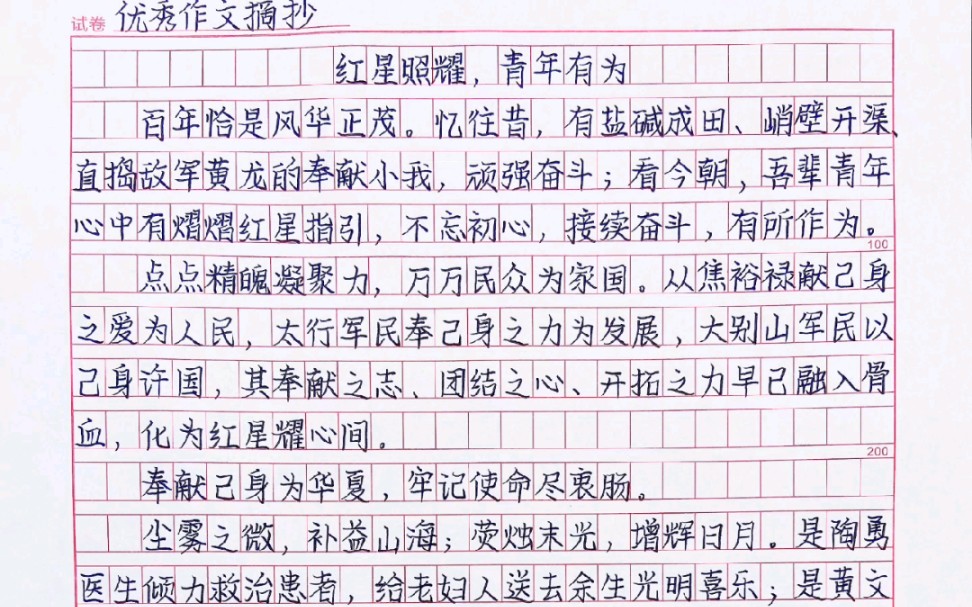 试卷 优秀作文摘抄
红星照耀，青年有为
百年恰是风华正茂。忆往昔，有盐碱成田、峭壁开渠、
直捣敌军黄龙的奉献小我，顽强奋斗；看今朝，吾辈青年
心中有熠熠红星指引，不忘初心，接续奋斗，有所作为。
100
点点精魄凝聚力，万万民众为家国。从焦裕禄献己身
之爱为人民，太行军民奉己身之力为发展，大别山军民以
己身许国，其奉献之志、团结之心、开拓之力早已融入骨
血，化为红星耀心间。
200
奉献己身为华夏，牢记使命尽衷肠。
尘雾之微，补益山海；荧烛末光，增辉日月。是陶勇
医生倾力救治患者，给老妇人送去余生光明喜乐；是黄文